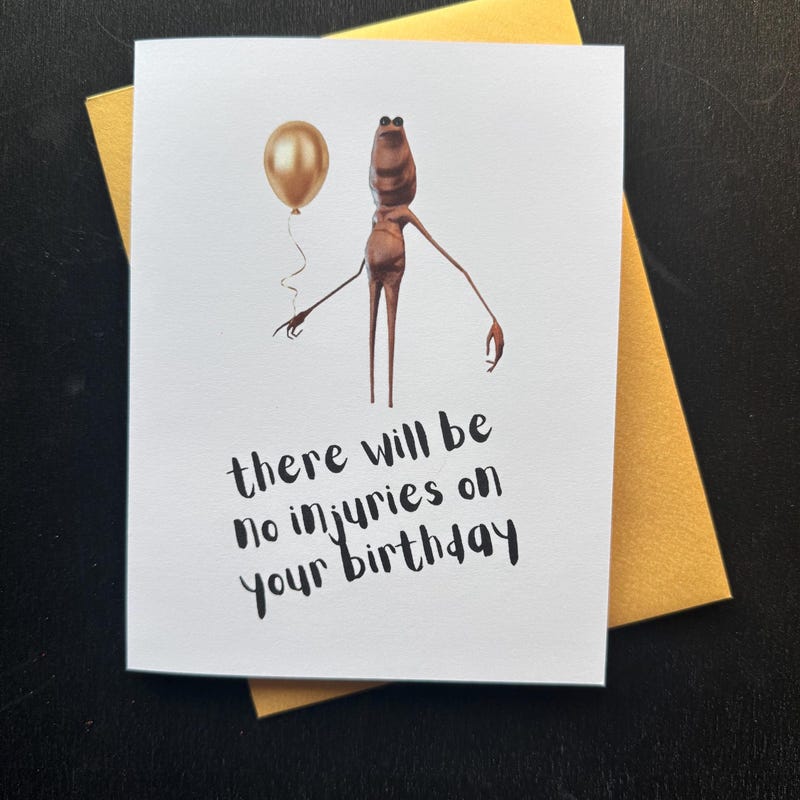 there will be
no injuries on
your birthday